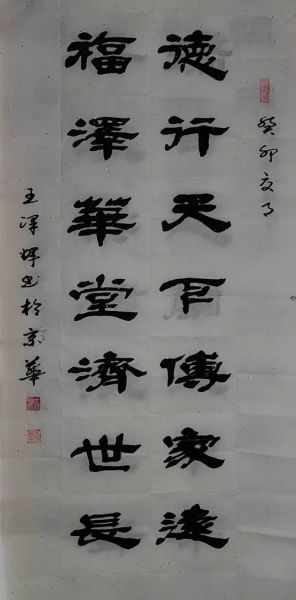 癸卯夏月
德行天下傳家遠
福澤華堂濟世長
王澤輝书於京華